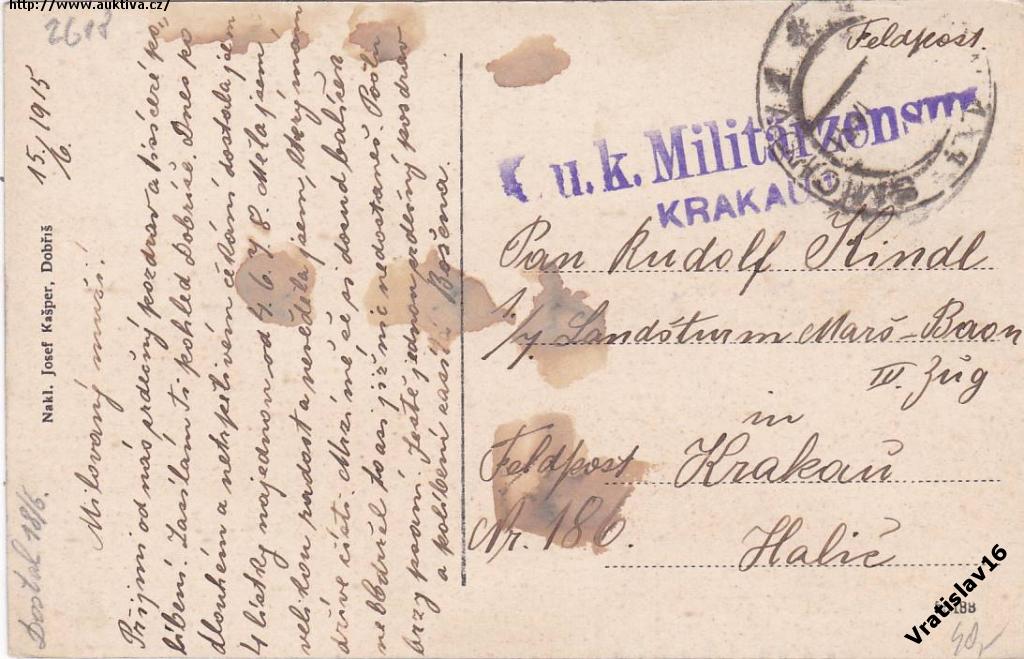 http://www.auktiva.cz/
2618
15./6. 1915
Milovaný muži!
Přijmi od nás srdečný pozdrav a srdečné po-
líbení. Zasílám ti pohled Dobříše. Dnes po
dlouhém a netrpělivém čekání dostala jsem
4 lístky najednou od 4. 6. 7. 8. Měla jsem
velikou radost a nevěděla jsem, který mám
dříve čísti. Mrzí mě že jsi dosud balíček
neobdržel to asi již nic nedostaneš. Pošli
brzy psaní. Ještě jednou srdečný pozdrav
a políbení zasílá Božena.
Nakl. Josef Kašper, Dobříš
Dostal 18/6.
Feldpost.
u. k. Militärzensur
KRAKAU
SMÍCHOV
Pan Rudolf Hindl
1./7. Landšturm Marš-Baon
IV. Zug
in
Feldpost Krakau
Nr. 186. Halič
188
Vratislav16